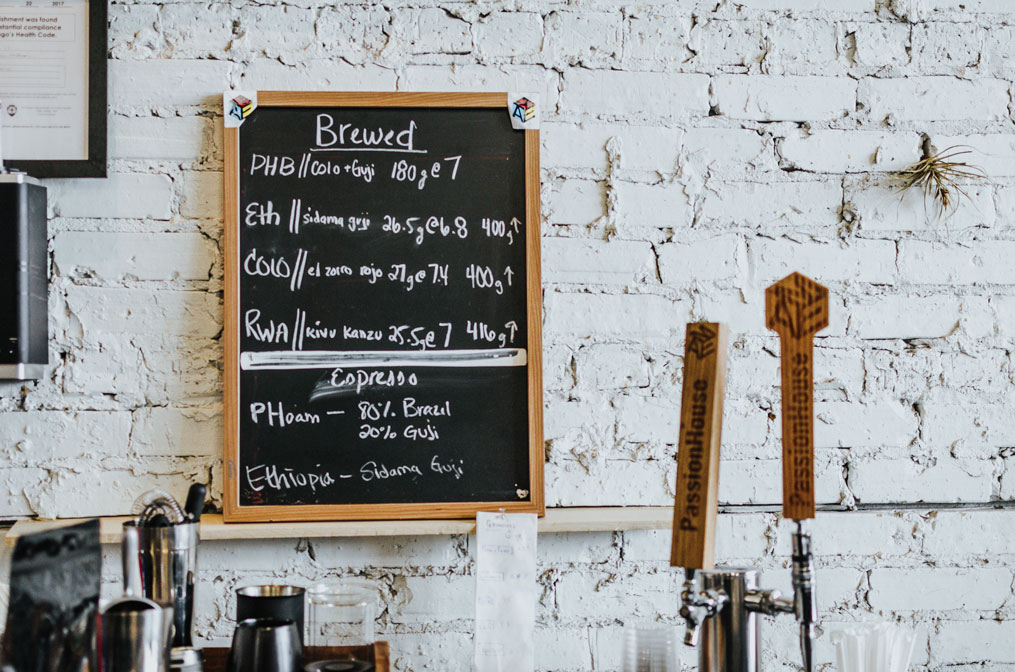 22 2017
lishment was found
stantial compliance
ago's Health Code.
Brewed
PHB//Colo+Guji 180g@7
Eth //sidama guji 26.5g@6.8 400g↑
COLO//el zorro rojo 27g@7.4 400g↑
RWA//kivu kanzu 25.5g@7 416g↑
Espresso
PHoam — 80% Brazil
20% Guji
Ethiopia — Sidama Guji
PassionHouse
PassionHouse